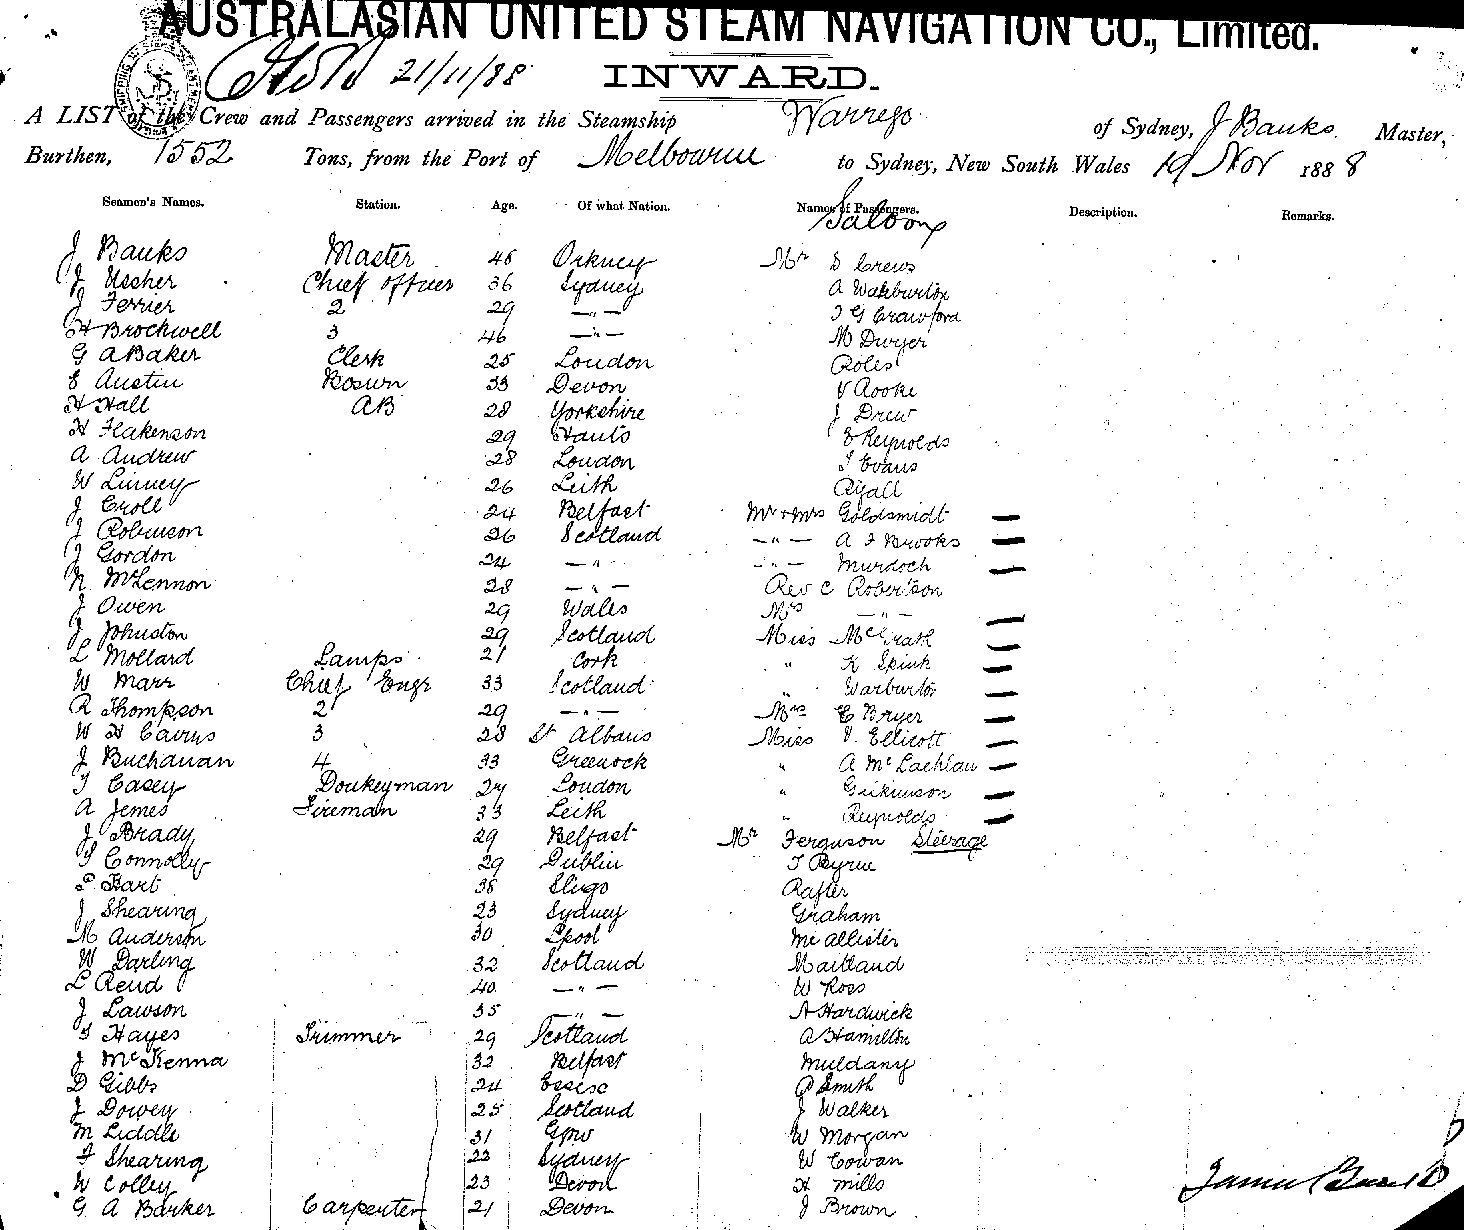 AUSTRALASIAN UNITED STEAM NAVIGATION CO., Limited.
21/11/88 INWARD.
A LIST of the Crew and Passengers arrived in the Steamship Warrego of Sydney, J Banks. Master,
Burthen, 1552 Tons, from the Port of Melbourne to Sydney, New South Wales 19 Nov 1888
Seamen's Names. Station. Age. Of what Nation. Names of Passengers. Description. Remarks.
Saloon
J Banks Master 46 Orkney Mr S Crews
J Ussher Chief Officer 36 Sydney A Warburton
J Ferrier 2 29 —"— J G Crawford
H Brockwell 3 46 —"— M Dwyer
G A Baker Clerk 25 London Roles
E Austin Bosun 33 Devon V Rooke
H Hall AB 28 Yorkshire J Drew
H Flakenson 29 Hants E Reynolds
A Andrew 28 London J Evans
W Linney 26 Leith Ryall
J Croll 24 Belfast Mr & Mrs Goldsmidt —
J Robinson 26 Scotland —"— A J Brooks —
J Gordon 24 —"— —"— Murdoch —
N McLennon 28 —"— Rev C Robertson
J Owen 29 Wales Mrs —"— —
J Johnston 29 Scotland Miss McGrath —
L Mollard Lamps 21 Cork " K Spink —
W Marr Chief Engr 33 Scotland " Warburton —
R Thompson 2 29 —"— Mrs E Bryer —
W H Cairns 3 28 St Albans Miss V. Ellicott —
J Buchanan 4 33 Greenock " A McLachlan —
T Casey Donkeyman 27 London " —
A Jemes Fireman 33 Leith " Reynolds —
J Brady 29 Belfast Mr Ferguson Steerage
T Connolly 29 Dublin T Byrne
P Hart 38 Sligo Rafter
J Shearing 23 Sydney Graham
M Anderson 30 Lpool McAllister
W Darling 32 Scotland Maitland
L Reud 40 —"— W Ross
J Lawson 35 —"— A Hardwick
T Hayes Trimmer 29 Scotland A Hamilton
J McKenna 32 Belfast Muldany
D Gibbs 24 Essex P Smith
J Dowey 25 Scotland J Walker
M Liddle 31 W Morgan
F Shearing 23 Sydney W Cowan
W Colley 23 Devon H Mills
G A Barker Carpenter 21 Devon J Brown
James